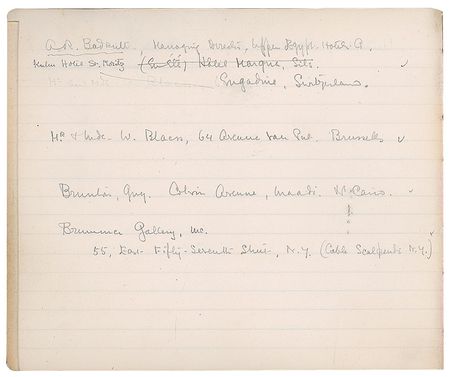 A.R. Badrutt, Managing Director, Upper Egypt Hotels Co.
Kulm Hotel St. Moritz (Suite) Hotel Margna, Sils
Engadine, Switzerland.
Mr & Mde. W. Blaess, 64 Avenue van Put. Brussels
Brunton, Guy. Colvin Avenue, Maadi. Nr Cairo.
Brummer Gallery, Inc.
55, East Fifty-Seventh Street, N.Y. (Cable Sculpents N.Y.)